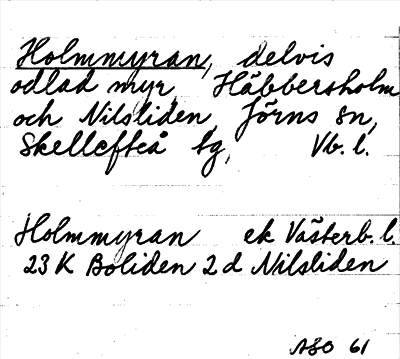 Holmmyran, delvis
odlad myr, Häbbersholm
och Nilsliden, Jörns sn,
Skellefteå tg, Vb. l.
Holmmyran ek Västerb. l.
23 K Boliden 2 d Nilsliden
ASO 61